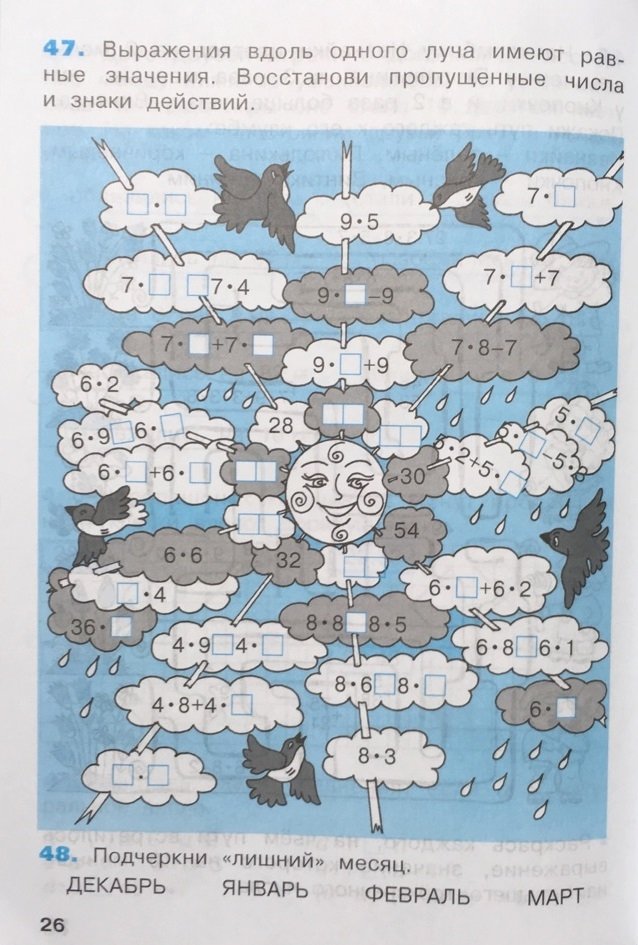 47. Выражения вдоль одного луча имеют рав-
ные значения. Восстанови пропущенные числа
и знаки действий.
□·□
9·5
7·□
7·□ □ 7·4
9·□–9
7·□+7
7·□+7·□
9·□+9
7·8–7
6·2
28
□□
□□
5·□
6·9□6·□
□–5·
·2+5·□
6·□+6·□
□□
30
□□
54
6·6
32
□□
□·4
6·□+6·2
36·□
8·8□8·5
4·9□4·□
6·8□6·1
8·6□8·□
4·8+4·□
6·□
8·3
□·□
48. Подчеркни «лишний» месяц.
ДЕКАБРЬ ЯНВАРЬ ФЕВРАЛЬ МАРТ
26